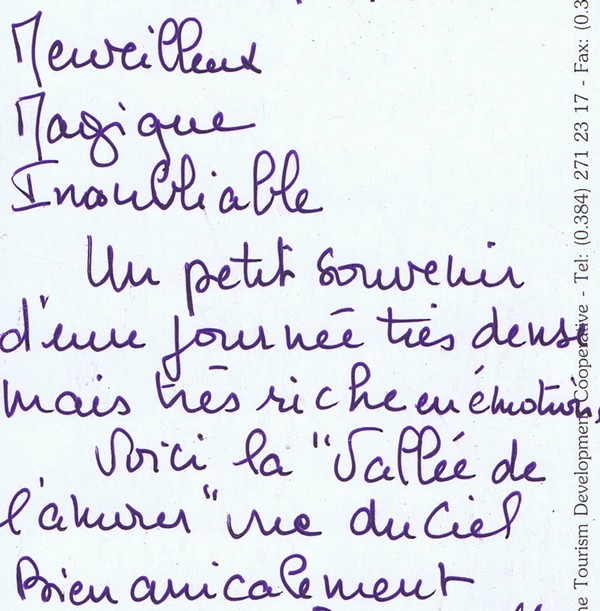 Merveilleux
Magique
Inoubliable
Un petit souvenir
d'une journée très dense
mais très riche en émotions,
Voici la "Vallée de
l'amour" vue du Ciel
Bien amicalement
ne Tourism Development Cooperative - Tel: (0.384) 271 23 17 - Fax: (0.3